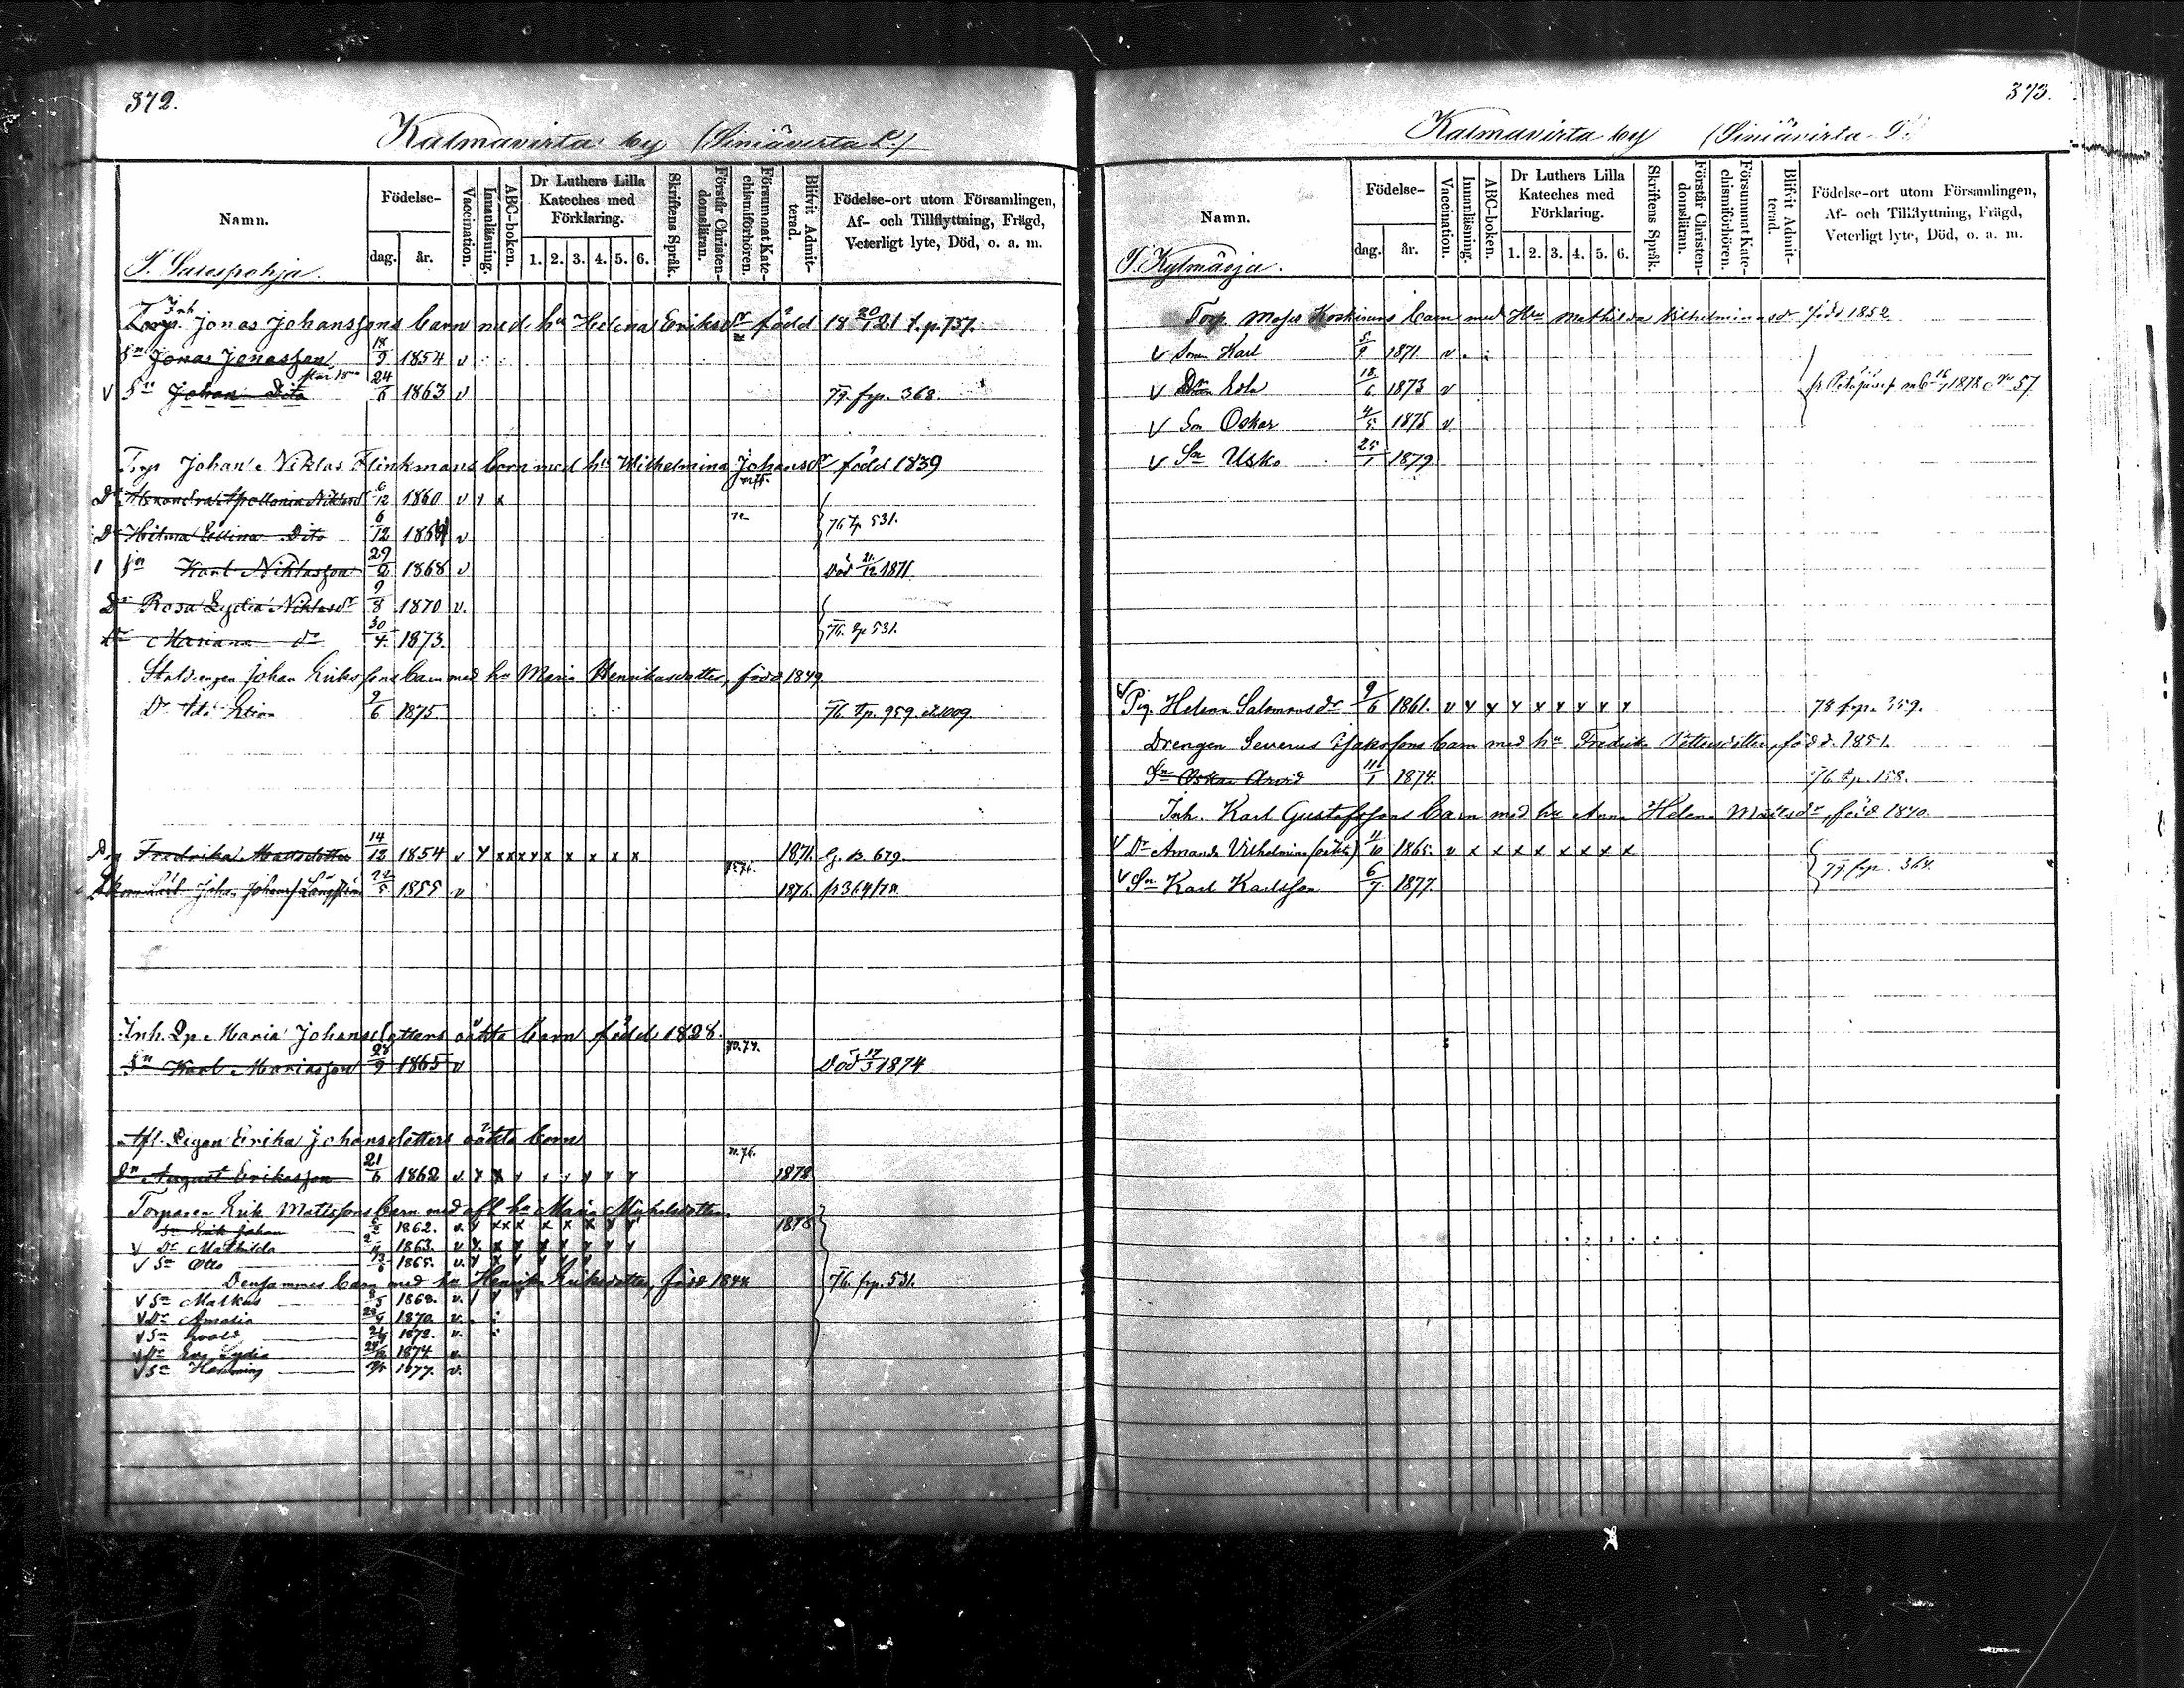 372.
Kalmavirta by (Siniävirta P.)
Namn.
Födelse-
dag.
år.
Vaccination.
Innanläsning.
ABC-boken.
Dr Luthers Lilla
Kateches med
Förklaring.
1. 2. 3. 4. 5. 6.
Skriftens Språk.
Förstår Christen-
domsläran.
Försummat Kate-
chismiförhören.
Blifvit Admit-
terad.
Födelse-ort utom Församlingen,
Af- och Tillflyttning, Frägd,
Veterligt lyte, Död, o. a. m.
T.
Inh Jonas Johanssons barn med hu Helena Eriksdr född 18 20/1 21 t.p. 757.
Sn Jonas Jonasson 18/9 1854 v
v Sn Johan Dito 24/6 1863 v 79. frp. 368.
Torp Johan Niklas Flinkmans barn med hu Wilhelmina Johansdr född 1839
Dr Alexandra Apollonia Niklasdr 6/12 1860 v x x
Dr Hilma Dito 6/12 v 76 tp 531.
Sn Karl Niklasson 29/2 1868 v Död 21/12 1871
Dr Rosa Lydia Niklasdr 9/8 1870 v.
Dr Mariana do 30/4 1873. 76. tp 531.
Johan Erikssons barn med hu Maria Henriksdotter, född 1849
Dr Ida 9/6 1875. 76. tp. 959. 1009.
Pig Fredrika Mattsdotter 14/12 1854 v x x x x x x x x x 1871.
Johan 22/5 1855 v 1876. p 364/78
Inh. Qp. Maria Johansdotters oäkta barn född 1828.
Sn Karl Mariasson 28/9 1865 v 70.74. Död 17/3 1874
Afl. Pigan Erika Johansdotters oäkta barn
Sn August Eriksson 21/6 1862 v x x n.76. 1878
Torparen Erik Mattssons barn med afl hu Maria Michelsdotter.
Sn Erik Johan 1862. v. x x x x x x x x 1878
v Dr Mathilda 1863. v x. x x x x x x x
v Sn Otto 1865. v. x x
Densammes barn med hu Henrika Eriksdotter, född 1844 76. frp. 531.
v Sn Malkus 1868. v.
v Dr Amalia 1870. v.
v Sn Evald 1872. v.
v Dr Eva Lydia 1874 v.
v Sn Henning 1877. v.
373.
Kalmavirta by (Siniävirta P.
Namn.
Födelse-
dag.
år.
Vaccination.
Innanläsning.
ABC-boken.
Dr Luthers Lilla
Kateches med
Förklaring.
1. 2. 3. 4. 5. 6.
Skriftens Språk.
Förstår Christen-
domsläran.
Försummat Kate-
chismiförhören.
Blifvit Admit-
terad.
Födelse-ort utom Församlingen,
Af- och Tillflyttning, Frägd,
Veterligt lyte, Död, o. a. m.
T. Kylmäoja.
Torp. Moses Koskinens barn med Hu Mathilda Vilhelminasdr född 1852
v Sonen Karl 5/9 1871 v.
v Dr 18/6 1873 v 1878 No 57.
v Son Oskar 4/5 1875 v.
v Sn Usko 25/1 1879.
v Pig. Helena Salomonsdr 9/6 1861. v x x x x x x x x 78 frp. 359.
Drengen Severus Isakssons barn med hu Fredrika född 1851.
Sn Oskar Arvid 11/1 1874. 76 tp. 158.
Inh. Karl Gustafssons barn med hu Anna Helena Mattsdr, född 1840.
v Dr Amanda Vilhelmina (oäkta) 11/10 1865. v x x x x x x x x
v Sn Karl Karlsson 6/7 1877. 77. frp. 364.